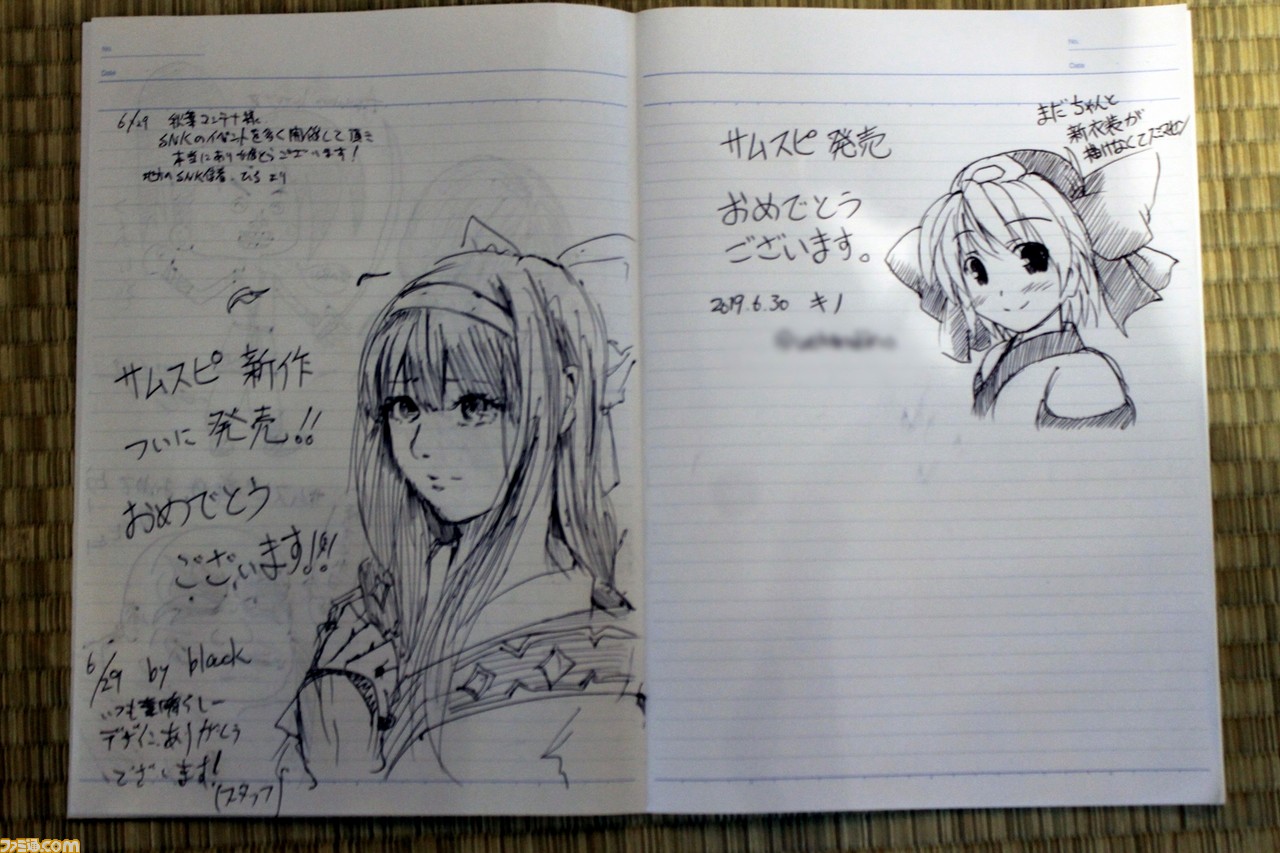 No.
Date
6/29 秋葉コンテナ様
SNKのイベントを多く開催して頂き
本当にありがとうございます!
地方のSNK信者 びら より
サムスピ 新作
ついに 発売!!
おめでとう
ございます!!!
6/29 by black
いつも素晴らしー
デザインありがとう
ございます!
(スタッフ)
No.
Date
サムスピ 発売
おめでとう
ございます。
2019.6.30 キノ
まだちゃんと
新衣装が
描けなくて
ファミ通.com